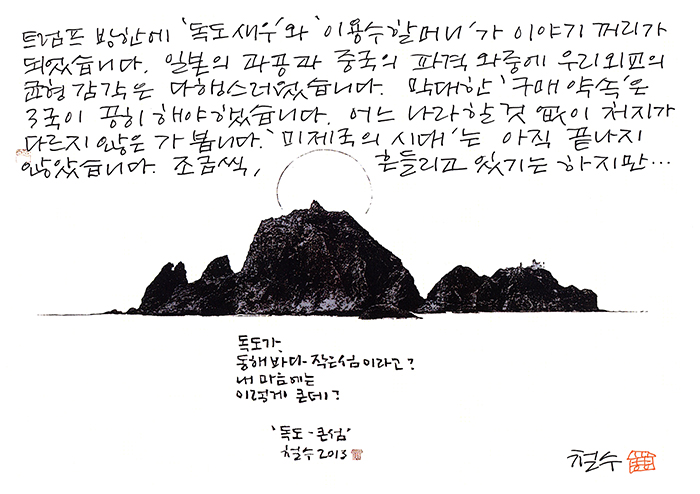 트럼프 방한에 '독도새우'와 '이용수할머니'가 이야기 꺼리가
되었습니다. 일본의 파퐁과 중국의 파격 와중에 우리외교의
균형감각은 다행스러웠습니다. 막대한 '구매약속'은
3국이 공히 해야 했습니다. 어느 나라할 것 없이 처지가
다르지 않은가 봅니다. '미제국의 시대'는 아직 끝나지
않았습니다. 조금씩, 흔들리고 있기는 하지만…
독도가,
동해바다 작은섬이라고?
내 마음에는
이렇게 큰데?
'독도 - 큰섬'
철수 2013
철수